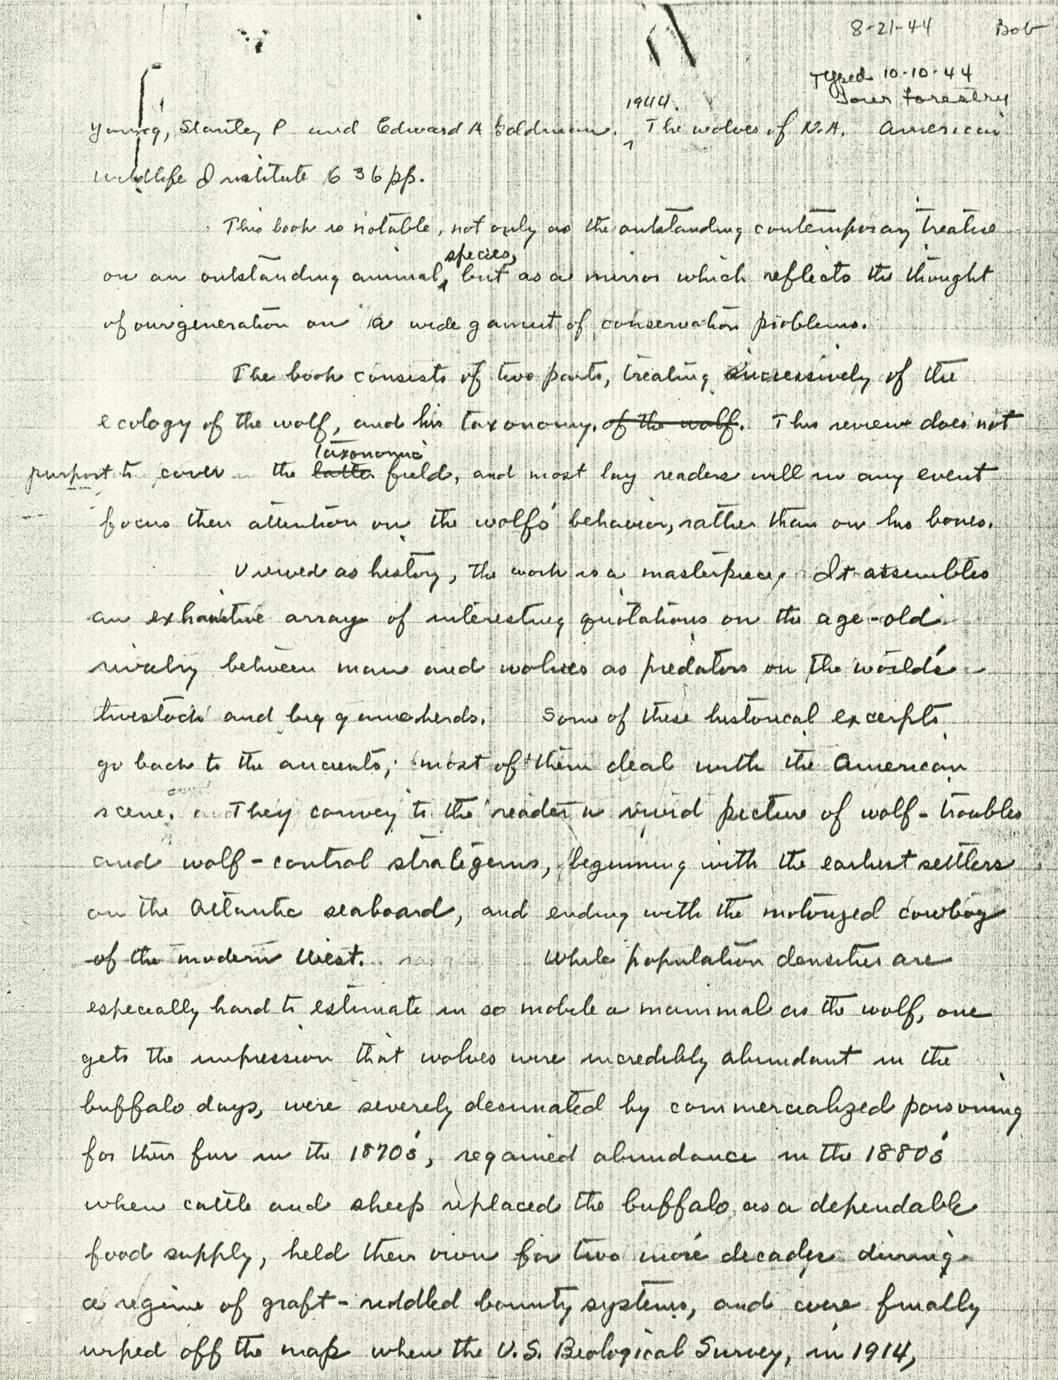 8-21-44 Bob
Typed 10-10-44
Jour Forestry
1944.
Young, Stanley P and Edward A Goldman. The wolves of N.A. American
Wildlife Institute 636 pp.
This book is notable, not only as the outstanding contemporary treatise
species,
on an outstanding animal, but as a mirror which reflects the thought
of our generation on a wide gamut of conservation problems.
The book consists of two parts, treating successively of the
ecology of the wolf, and his taxonomy. of the wolf. This review does not
taxonomic
purport to cover the latter field, and most lay readers will in any event
focus their attention on the wolf's behavior, rather than on his bones.
Viewed as history, the work is a masterpiece. It assembles
an exhaustive array of interesting quotations on the age-old
rivalry between man and wolves as predators on the world's
livestock and big game herds. Some of these historical excerpts
go back to the ancients; most of them deal with the American
scene. They convey to the reader a vivid picture of wolf-troubles
and wolf-control strategems, beginning with the earliest settlers
on the Atlantic seaboard, and ending with the motorized cowboy
of the modern West. While population densities are
especially hard to estimate in so mobile a mammal as the wolf, one
gets the impression that wolves were incredibly abundant in the
buffalo days, were severely decimated by commercialized poisoning
for their fur in the 1870's, regained abundance in the 1880's
when cattle and sheep replaced the buffalo as a dependable
food supply, held their own for two more decades during
a regime of graft-riddled bounty systems, and were finally
wiped off the map when the U.S. Biological Survey, in 1914,